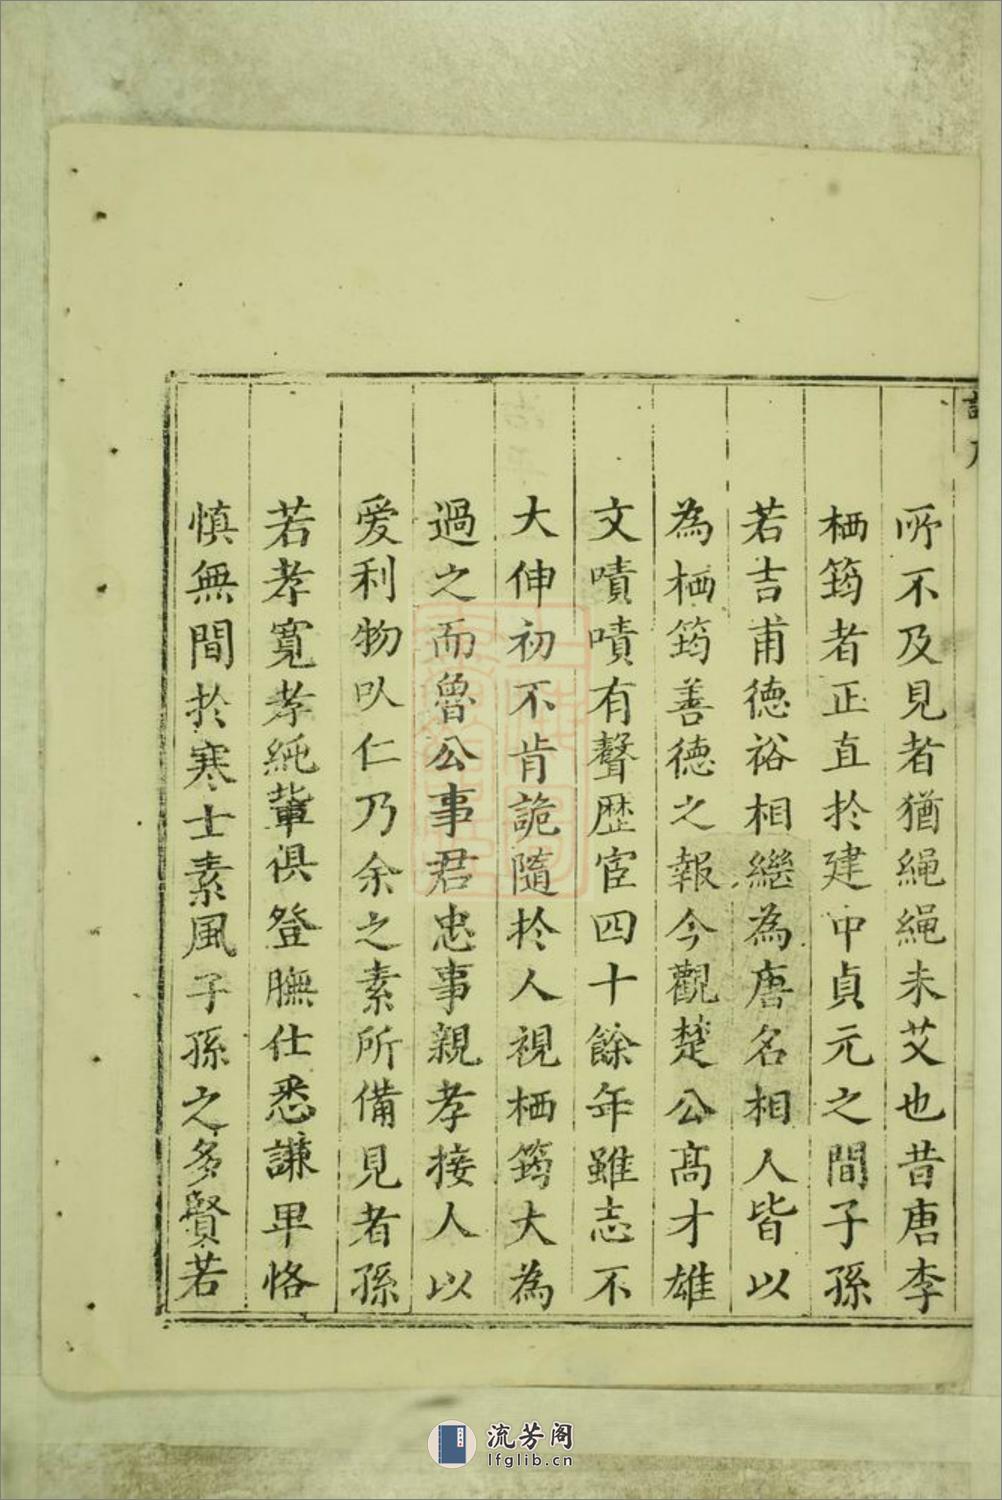 所不及見者猶繩繩未艾也昔唐李
栖筠者正直於建中貞元之間子孫
若吉甫德裕相繼為唐名相人皆以
為栖筠善德之報今觀楚公高才雄
文嘖嘖有聲歴宦四十餘年雖志不
大伸初不肯詭隨於人視栖筠大為
過之而魯公事君忠事親孝接人以
爱利物㕥仁乃余之素所備見者孫
若孝寬孝純軰俱登膴仕悉謙卑恪
慎無間於寒士素風子孫之多賢若
流芳阁
lfglib.cn